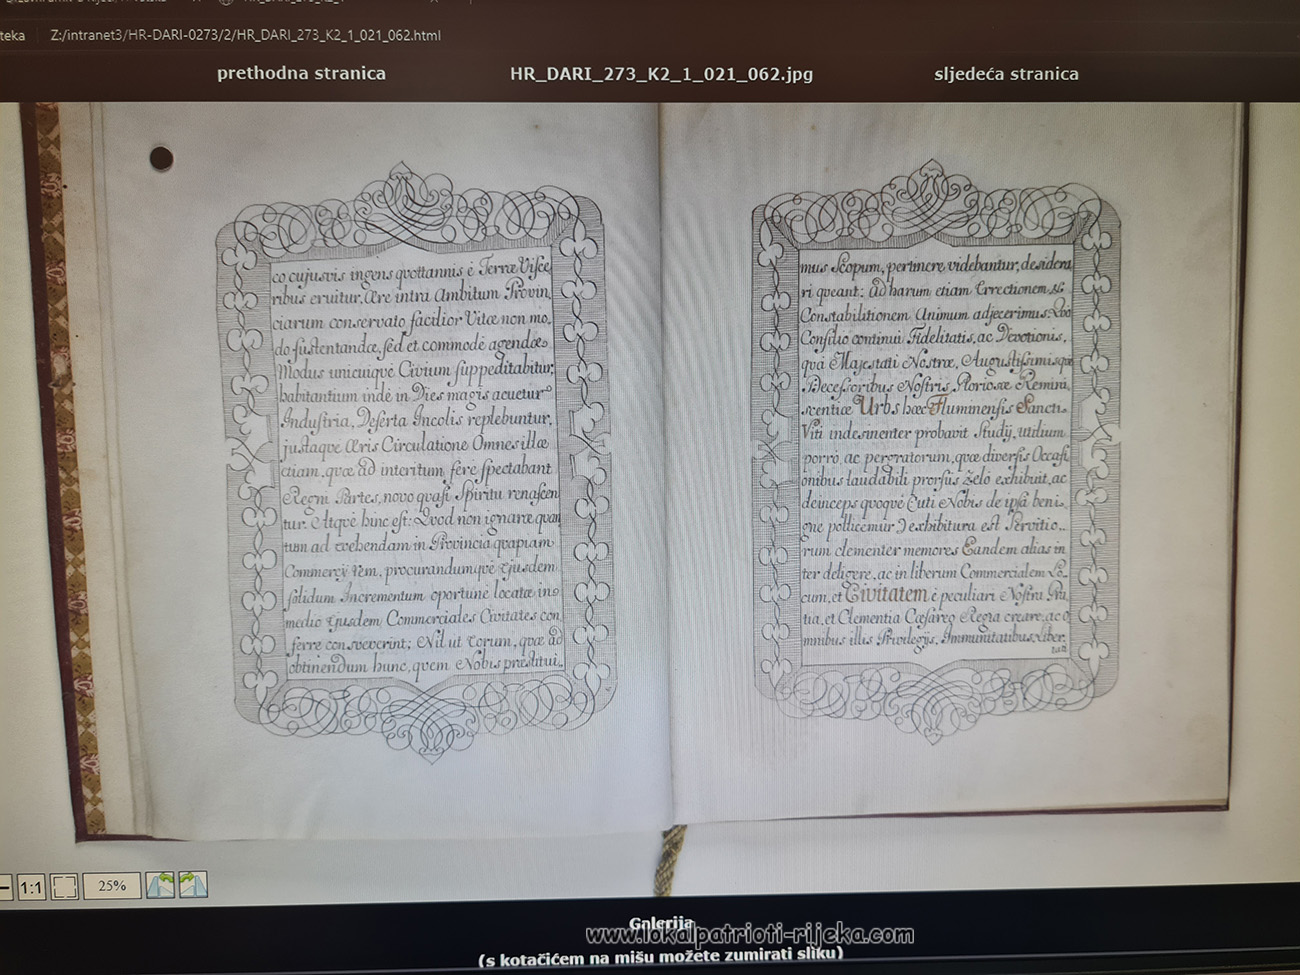 teka Z:/intranet3/HR-DARI-0273/2/HR_DARI_273_K2_1_021_062.html
prethodna stranica HR_DARI_273_K2_1_021_062.jpg sljedeća stranica
co cujusvis ingens quottannis è Terræ Visce
ribus eruitur, Ære intra Ambitum Provin,
ciarum conservato facilior Vitæ non mo,
do sustentandæ, sed et commodè agendæ
Modus unicuiquè Civium suppeditabitur;
habitantium indè in Dies magis acuetur
Industria, Deserta Incolis replebuntur,
justaquè Æris Circulatione Omnes illæ
etiam, quæ ad interitum ferè spectabant
Regni Partes, novo quasi Spiritu renascen
tur. Atquè hinc est: Quod non ignaræ quan
tum ad evehendam in Provincia quapiam
Commercÿ rem, procurandumquè ejusdem
solidum Incrementum oportunè locatæ in
medio ejusdem Commerciales Civitates con,
ferre consveverint; Nil ut eorum, quæ ad
obtinendum hunc, quem Nobis præstitui,
mus Scopum, pertinere videbantur, desidera
ri queant: ad harum etiam Errectionem &
Constabilitionem Animum adjecerimus: Quo
Consilio continui Fidelitatis, ac Devotionis,
quâ Majestati Nostræ, Augustissimisque
Prædecessoribus Nostris, Gloriosæ Remini,
scentiæ Urbs hæc Fluminensis Sancti
Viti indesinenter probavit Studÿ, utilium
porrò, ac pergratorum, quæ diversis Occasi
onibus laudabili prorsus Zelô exhibuit, ac
deinceps quoquè Cuti Nobis de ipsa beni,
gnè pollicemur exhibitura est Servitio,,
rum clementer memores Eandem alias in
ter deligere, ac in liberum Commercialem Lo,
cum, et Civitatem è peculiari Nostra Gra
tia, et Clementia Cæsareo Regia creare, ac o
mnibus illis Privilegÿs, Immunitatibus, Liber,
tati
1:1 25%
Galerija
www.lokalpatrioti-rijeka.com
(s kotačićem na mišu možete zumirati sliku)